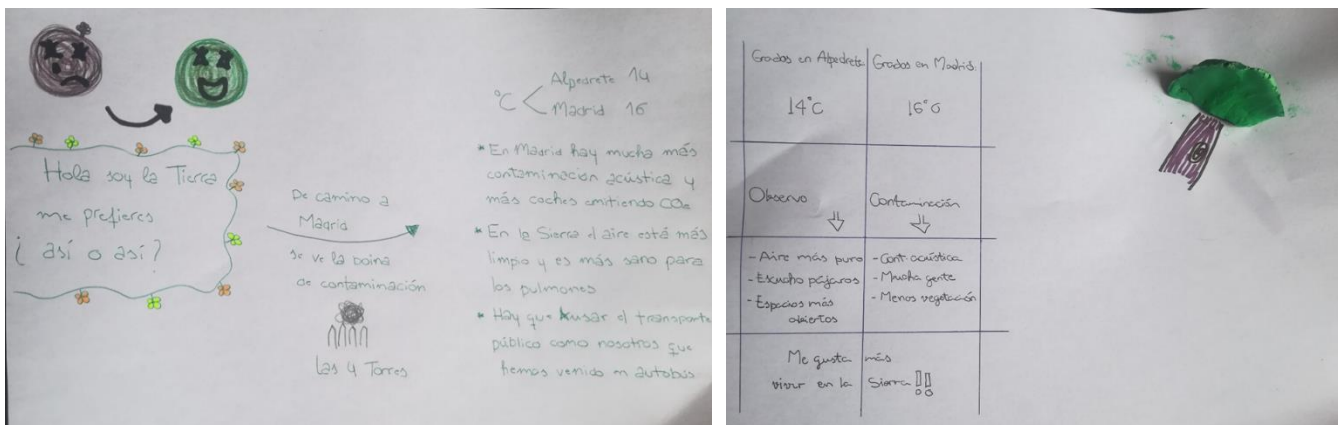 Hola soy la Tierra
me prefieres
¿ así o así?
De camino a
Madrid
se ve la boina
de contaminación
Las 4 Torres
°C
Alpedrete 14
Madrid 16
* En Madrid hay mucha más
contaminación acústica y
más coches emitiendo CO₂
* En la Sierra el aire está más
limpio y es más sano para
los pulmones
* Hay que usar el transporte
público como nosotros que
hemos venido en autobús
Grados en Alpedrete
14°C
Grados en Madrid
16°C
Observo
Contaminación
- Aire más puro
- Escucho pájaros
- Espacios más
abiertos
- Cont. acústica
- Mucha gente
- Menos vegetación
Me gusta más
vivir en la Sierra!!